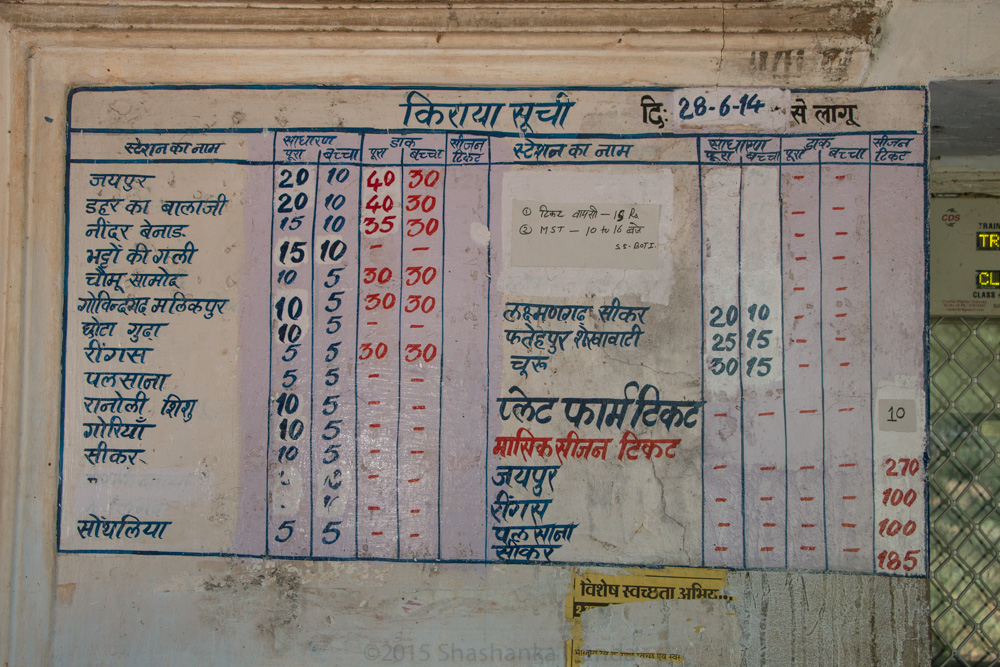 किराया सूची दि: 28-6-14 से लागू
स्टेशन का नाम साधारण डाक सीजन टिकट स्टेशन का नाम साधारण डाक सीजन टिकट
पूरा बच्चा पूरा बच्चा पूरा बच्चा पूरा बच्चा
जयपुर 20 10 40 30
डहर का बालाजी 20 10 40 30
नींदर बेनाड 15 10 35 30
भट्टों की गली 15 10 - -
चौमू सामोद 10 5 30 30
गोविन्दगढ़ मलिकपुर 10 5 30 30
छोटा गुढ़ा 10 5 - -
रींगस 5 5 30 30
पलसाना 5 5 - -
रानोली शिशु 10 5 - -
गोरियाँ 10 5 - -
सीकर 10 5 - -
सोंथलिया 5 5 - -
① टिकट वापसी - 15 Rs
② MST - 10 to 16 बजे
लक्ष्मणगढ़ सीकर 20 10 - -
फतेहपुर शेखावाटी 25 15 - -
चूरू 30 15 - -
प्लेट फार्म टिकट - - - - 10
मासिक सीजन टिकट
जयपुर - - - - 270
रींगस - - - - 100
पलसाना - - - - 100
सीकर - - - - 185
CDS
TRAIN
TR
CL
CLASS
विशेष स्वच्छता अभिय...
©2015 Shashanka